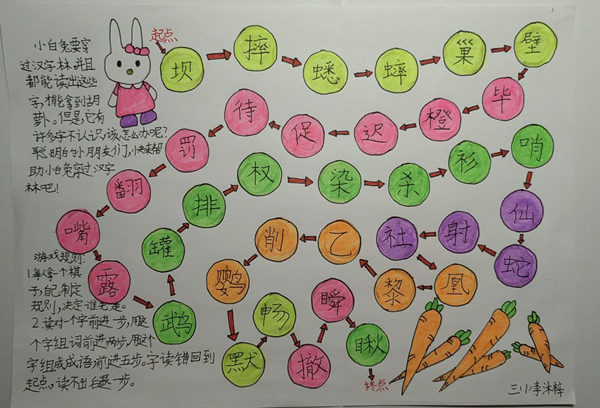 小白兔要穿
过汉字林,并且
都能读出这些
字,才能拿到胡
萝卜。但是,它有
许多字不认识,该怎么办呢?
聪明的小朋友们,快来帮
助小白兔穿过汉字
林吧!
游戏规则:
1.每人拿个棋
子,自己制定
规则,决定谁先走。
2.读对个字前进一步,用这
个字组词前进两步,用这个
字组成成语前进五步。字读错回到
起点,读不出后退一步。
起点
坝
摔
蟋
蟀
巢
壁
毕
橙
迟
促
待
罚
翻
嘴
露
鹉
罐
排
权
染
杀
衫
哨
仙
蛇
射
社
凰
黎
乙
削
鹦
默
畅
撤
瞬
瞅
终点
三小李沐梓